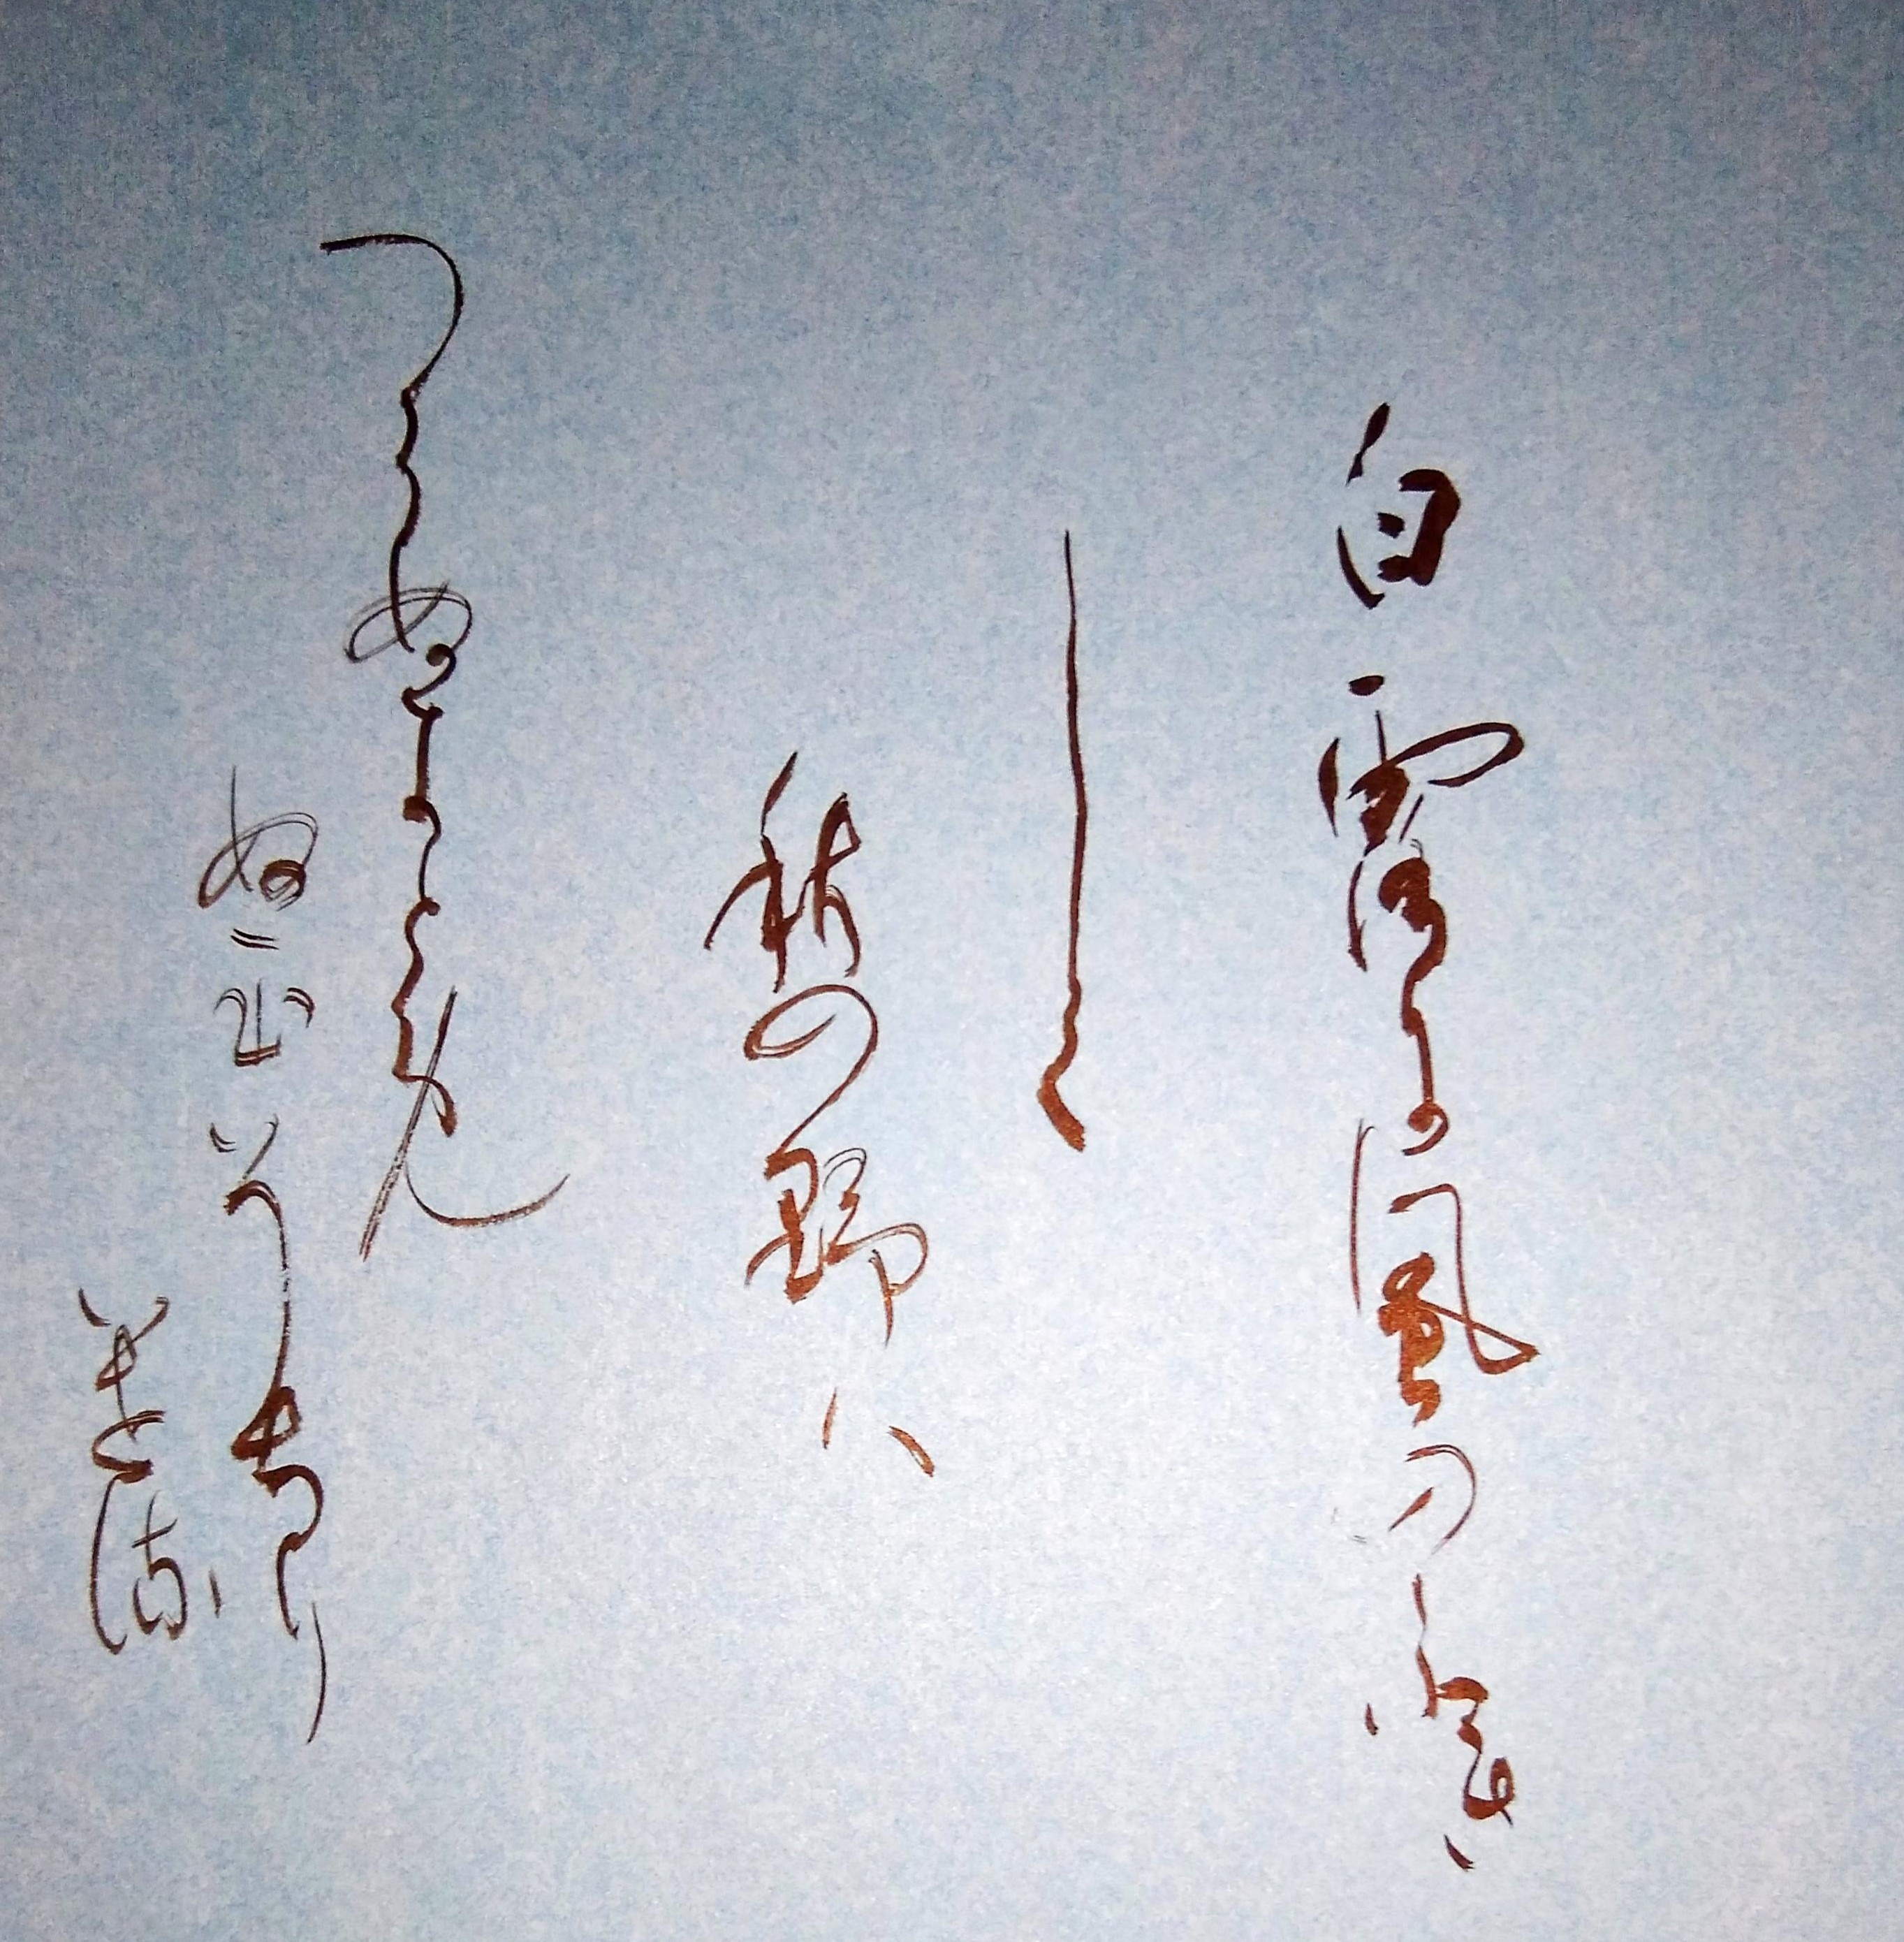 白露に風の吹き
しく
秋の野ハ
つらぬきとめ
ぬ玉そ散り
ける